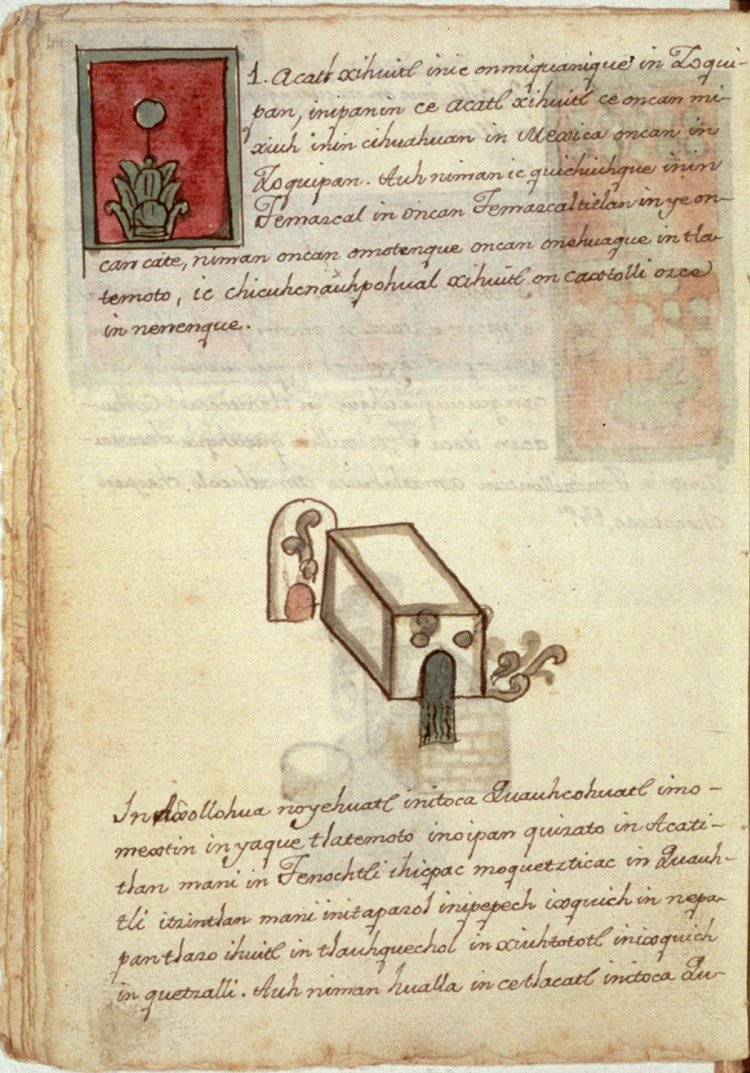 1. Acatl xihuitl inic onmiquanique in Zoqui-
pan, inipanin ce Acatl xihuitl ce oncan mi-
xiuh inin cihuahuan in Mexica oncan in
Zoquipan. Auh niman ic quichiuhque inin
Temazcal in oncan Temazcaltitlan in ye on-
can cate, niman oncan omotenque oncan onehuaque in tla-
temoto, ic chicuhcnauhpohual xihuitl on caxtolli oxce
in nenenque.
In Axollohua noyehuatl initoca Quauhcohuatl imo-
mextin in yaque tlatemoto inoipan quizato in Acati-
tlan mani in Tenochtli ihicpac moquetzticac in Quauh-
tli itzintlan mani initapazol inipepech ixquich in nepa-
pan tlazo ihuitl in tlauhquechol in xiuhtototl inixquich
in quetzalli. Auh niman hualla in ce tlacatl initoca Qu-